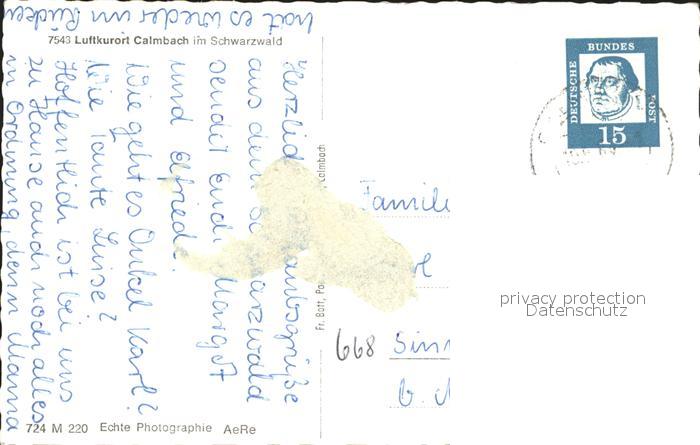 7543 Luftkurort Calmbach im Schwarzwald
Herzlich
aus dem Schwarzwald
sendet Euch Margot
und Elfriede.
Wie geht es Onkel Karl?
Wie Tante Luise?
Hoffentlich ist bei uns
zu Hause auch noch alles
in Ordnung denn Mama
hat es wieder im Rücken
724 M 220 Echte Photographie AeRe
Calmbach
Fr. Bott,
DEUTSCHE
BUNDES
POST
15
Familie
668
privacy protection
Datenschutz